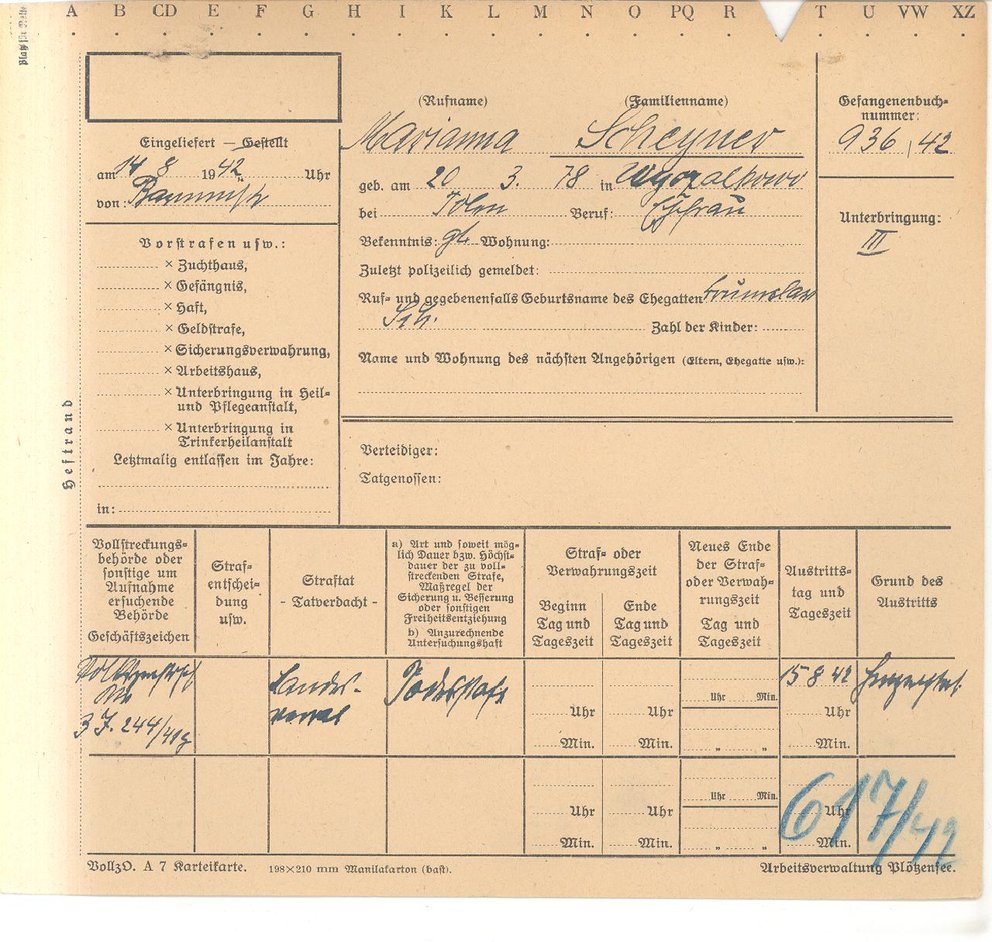 A B CD E F G H I K L M N O PQ R T U VW XZ
(Rufname) (Familienname)
Marianna Scheyner
Eingeliefert — Gestellt
am 14 8 1942 Uhr
von:
geb. am 20 3. 78 in
bei Polen Beruf: Ehefrau
Bekenntnis: Wohnung:
Zuletzt polizeilich gemeldet:
Ruf- und gegebenenfalls Geburtsname des Ehegatten
Sch. Zahl der Kinder:
Name und Wohnung des nächsten Angehörigen (Eltern, Ehegatte usw.):
Gefangenenbuch-
nummer:
936 / 42
Unterbringung:
III
Vorstrafen usw.:
× Zuchthaus,
× Gefängnis,
× Haft,
× Geldstrafe,
× Sicherungsverwahrung,
× Arbeitshaus,
× Unterbringung in Heil-
und Pflegeanstalt,
× Unterbringung in
Trinkerheilanstalt
Letztmalig entlassen im Jahre:
in:
Verteidiger:
Tatgenossen:
Heftrand
Vollstreckungs-
behörde oder
sonstige um
Aufnahme
ersuchende
Behörde
Geschäftszeichen
Straf-
entschei-
dung
usw.
Straftat
- Tatverdacht -
a) Art und soweit mög-
lich Dauer bzw. Höchst-
dauer der zu voll-
streckenden Strafe,
Maßregel der
Sicherung u. Besserung
oder sonstigen
Freiheitsentziehung
b) Anzurechnende
Untersuchungshaft
Straf- oder
Verwahrungszeit
Beginn
Tag und
Tageszeit
Ende
Tag und
Tageszeit
Neues Ende
der Straf-
oder Verwah-
rungszeit
Tag und
Tageszeit
Austritts-
tag und
Tageszeit
Grund des
Austritts
Landes-
verrat
Todesstrafe
15 8 42
Uhr Uhr Uhr Min. Uhr
Min. Min. „ „ Min.
Uhr Uhr Uhr Min. Uhr
Min. Min. „ „ Min.
617/42
VollzO. A 7 Karteikarte. 198×210 mm Manilakarton (bast). Arbeitsverwaltung Plötzensee.